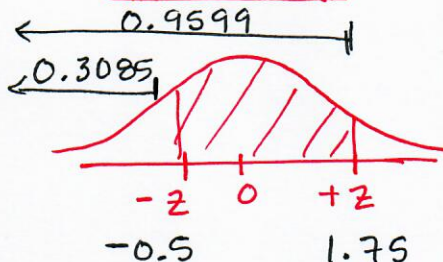 0.9599
0.3085
-z 0 +z
-0.5 1.75